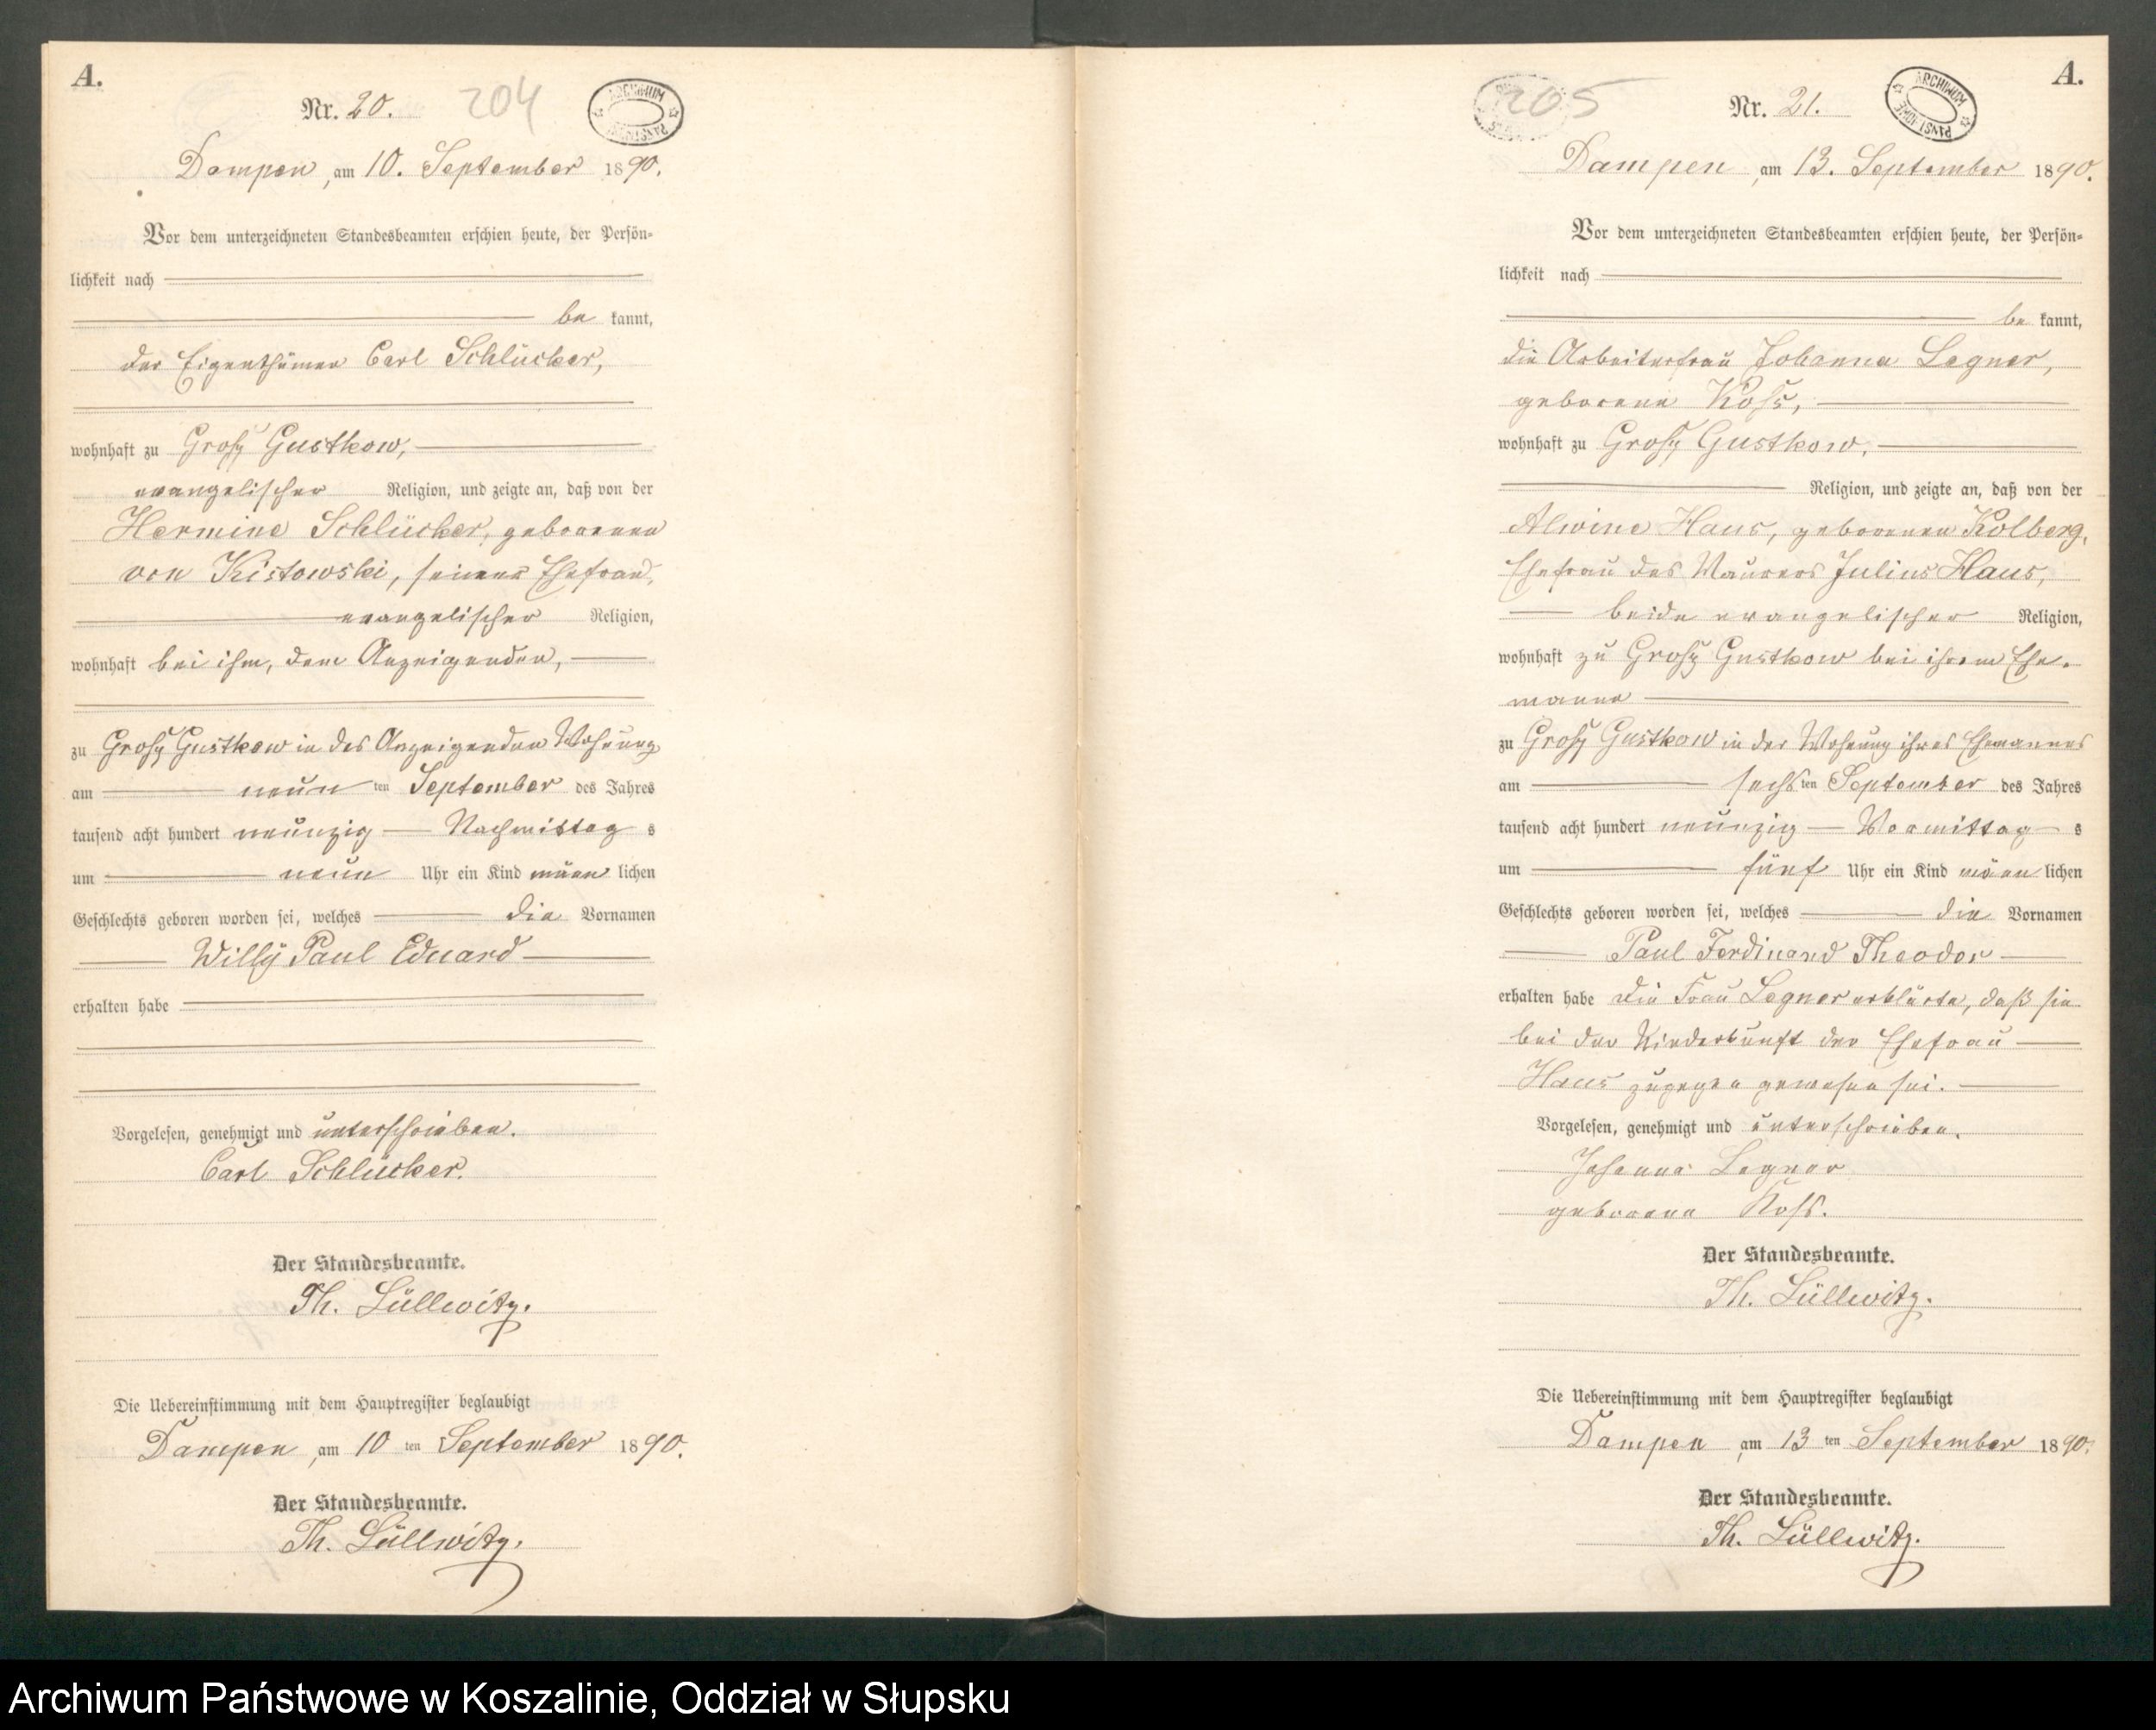 A.
Nr. 20.
204
ARCHIWUM PAŃSTWOWE
Dampen, am 10. September 1890.
Vor dem unterzeichneten Standesbeamten erschien heute, der Persön-
lichkeit nach
be kannt,
der Eigenthümer Carl Schlücker,
wohnhaft zu Groß Gustkow,
evangelischer Religion, und zeigte an, daß von der
Hermine Schlücker, geborenen
von Kistowski, seiner Ehefrau,
evangelischer Religion,
wohnhaft bei ihm, dem Anzeigenden,
zu Groß Gustkow in des Anzeigenden Wohnung
am neun ten September des Jahres
tausend acht hundert neunzig Nachmittag s
um neun Uhr ein Kind männ lichen
Geschlechts geboren worden sei, welches die Vornamen
Willy Paul Eduard
erhalten habe
Vorgelesen, genehmigt und unterschrieben.
Carl Schlücker.
Der Standesbeamte.
Th. Lüllwitz.
Die Uebereinstimmung mit dem Hauptregister beglaubigt
Dampen, am 10 ten September 1890.
Der Standesbeamte.
Th. Lüllwitz.
A.
Nr. 21.
205
ARCHIWUM PAŃSTWOWE
Dampen, am 13. September 1890.
Vor dem unterzeichneten Standesbeamten erschien heute, der Persön-
lichkeit nach
be kannt,
die Arbeiterfrau Johanna Legner,
geborene Koss,
wohnhaft zu Groß Gustkow,
Religion, und zeigte an, daß von der
Alwine Haus, geborenen Kolberg,
Ehefrau des Maurers Julius Haus,
beide evangelischer Religion,
wohnhaft zu Groß Gustkow bei ihrem Ehe-
manne
zu Groß Gustkow in der Wohnung ihres Ehemannes
am sechs ten September des Jahres
tausend acht hundert neunzig Vormittag s
um fünf Uhr ein Kind männ lichen
Geschlechts geboren worden sei, welches die Vornamen
Paul Ferdinand Theodor
erhalten habe Die Frau Legner erklärte, daß sie
bei der Niederkunft der Ehefrau
Haus zugegen gewesen sei.
Vorgelesen, genehmigt und unterschrieben.
Johanna Legner
geborene Koss.
Der Standesbeamte.
Th. Lüllwitz.
Die Uebereinstimmung mit dem Hauptregister beglaubigt
Dampen, am 13 ten September 1890.
Der Standesbeamte.
Th. Lüllwitz.
Archiwum Państwowe w Koszalinie, Oddział w Słupsku